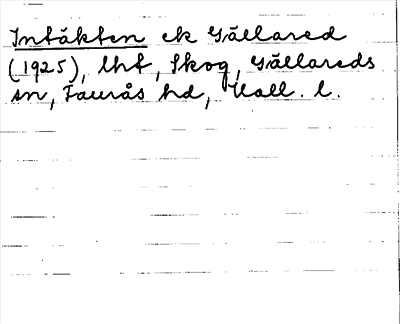 Intäkten ek Gällared
(1925), lht, Skog, Gällareds
sn, Faurås hd, Hall. l.